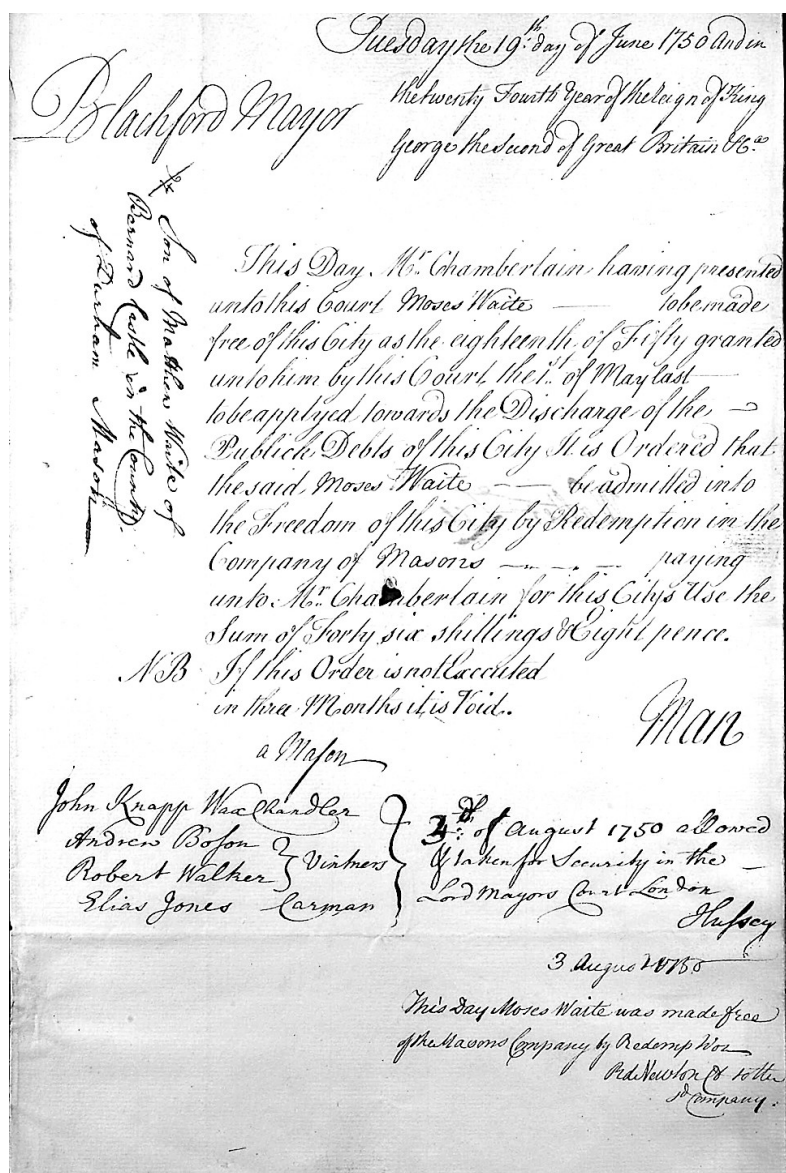 Tuesday the 19th day of June 1750 And in
the twenty Fourth Year of the Reign of King
George the Second of Great Britain &Ca
Blachford Mayor
Son of Mathew Waite of
Bernard Castle in the County
of Durham Mason
This Day Mr. Chamberlain having presented
unto this Court Moses Waite — to be made
free of this City as the eighteenth of Fifty granted
unto him by this Court the 1st of May last
to be applyed towards the Discharge of the
Publick Debts of this City It is Ordered that
the said Moses Waite — be admitted into
the Freedom of this City by Redemption in the
Company of Masons — paying
unto Mr. Chamberlain for this Citys Use the
Sum of Forty six shillings & Eight pence.
NB If this Order is not Executed
in three Months it is Void.
Man
a Mason
John Knapp Wax Chandler
Andrew Boson
Robert Walker } Vintners
Elias Jones Carman
3d. of August 1750 allowed
& taken for Security in the
Lord Mayors Court London
Hussey
3 August 1750
This Day Moses Waite was made free
of the Masons Company by Redemp
Newton
Company.